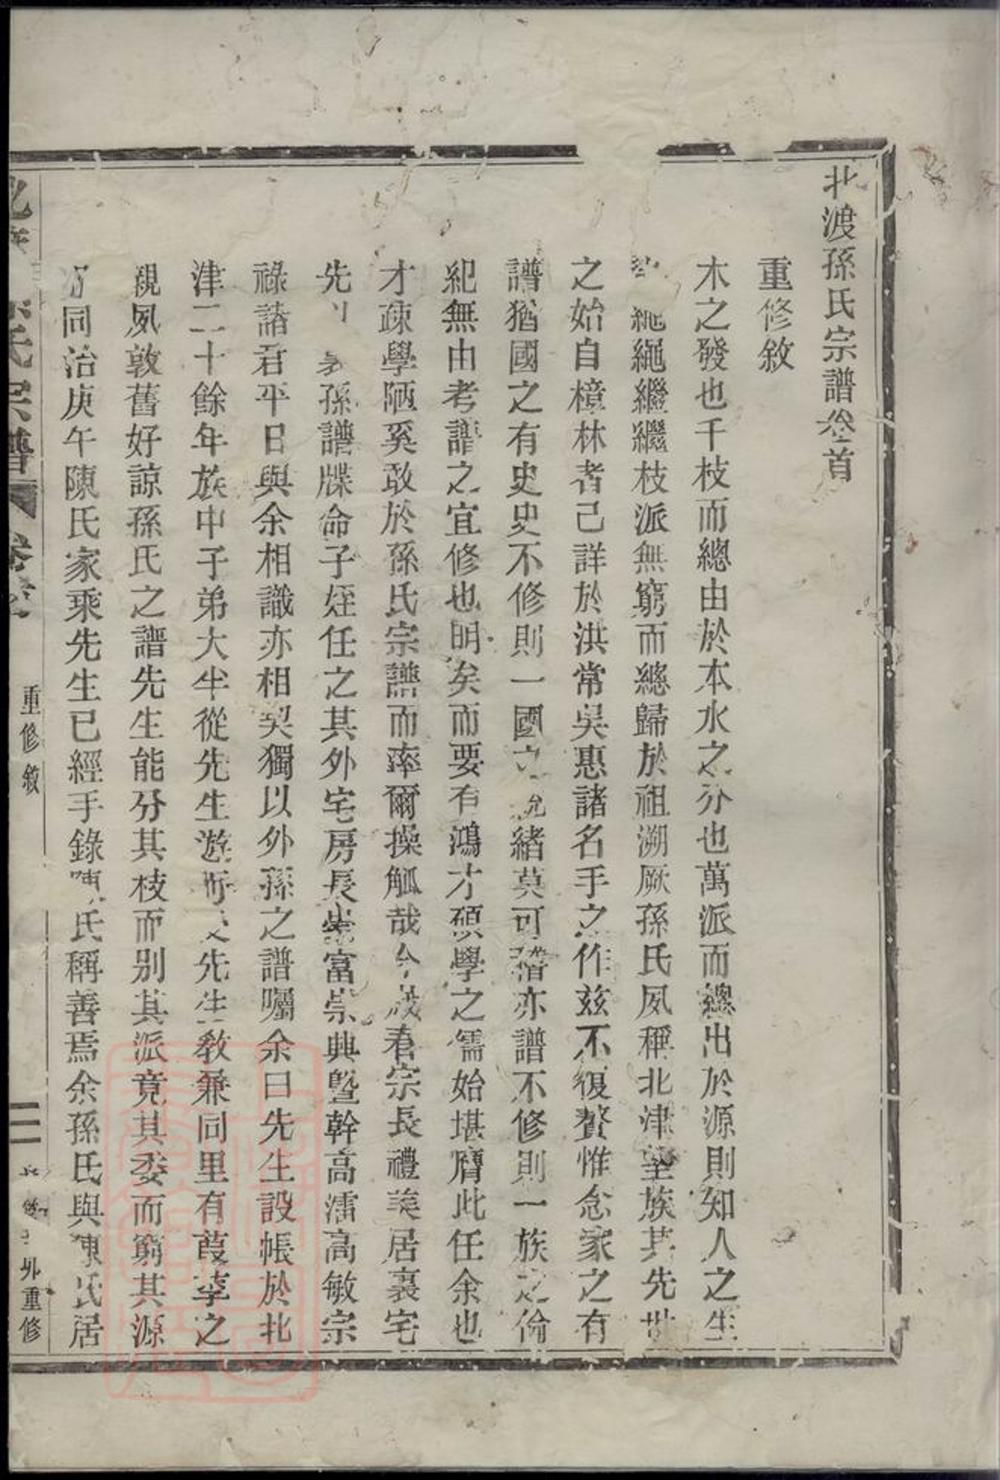 北渡孫氏宗譜卷首
重修敘
木之發也千枝而總由於本水之分也萬派而總出於源則知人之生
繩繩繼繼枝派無窮而總歸於祖溯厥孫氏夙稱北津望族其先世
之始自樟林者已詳於洪常吳惠諸名手之作兹不復贅惟念家之有
譜猶國之有史史不修則一國之統緒莫可稽亦譜不修則一族之倫
紀無由考譜之宜修也明矣而要有鴻才碩學之儒始堪膺此任余也
才疎學陋奚敢於孫氏宗譜而率爾操觚哉今歲春宗長禮美居裏宅
先以 孫譜牒命子姪任之其外宅房長崇富崇典曁幹高濡高敏宗
祿諸君平日與余相識亦相契獨以外孫之譜囑余曰先生設帳於北
津二十餘年族中子弟大半從先生遊而受先生教兼同里有葭莩之
親夙敦舊好諒孫氏之譜先生能分其枝而别其派竟其委而窮其源
同治庚午陳氏家乘先生已經手錄陳氏稱善焉余孫氏與陳氏居
氏宗譜 卷首 重修敘 二 外重修